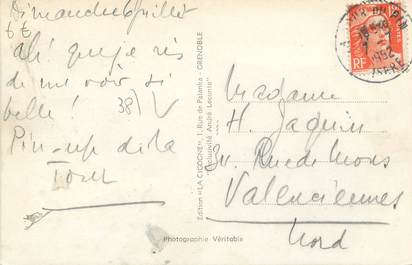 Dimanche 6 Juillet
Ah! que je ris
de me voir si
belle!
38) V
Pin-up de la
Tour
Edition "LA CIGOGNE", 1, Rue de Palanka - GRENOBLE
Photographie Véritable
LA TOUR DU PIN
ISERE
RF
Madame
H. Jaquin
34 Rue de Mons
Valenciennes
Nord